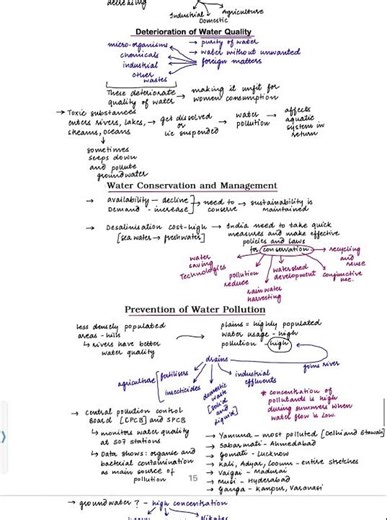 Industrial Agriculture
Domestic
Deterioration of Water Quality
micro-organisms
chemicals
industrial
other
wastes
→ purity of water
→ water without unwanted
foreign matters
These deteriorate
quality of water
→ making it unfit for
women consumption
→ Toxic substances
enters rivers, lakes,
streams, oceans
→ get dissolved
or
lie suspended
→ water
pollution
→ affects
aquatic
system in
return
sometimes
seeps down
and pollute
groundwater
Water Conservation and Management
→ availability - decline
Demand - increase
→ need to
conserve
→ sustainability is
maintained
→ Desalinisation cost-high
[sea water → freshwater]
→ India need to take quick
measures and make effective
policies and laws
for conservation
water
saving
Technologies
pollution
reduce
rain water
harvesting
watershed
development
conjunctive
use
recycling
and
reuse
Prevention of Water Pollution
less densely populated
areas - hills
↳ rivers have better
water quality
plains = highly populated
water usage - high
pollution - high
drains
joins river
agriculture
fertilisers
insecticides
domestic
water
[solid
and
liquid]
industrial
effluents
* concentration of
pollutants is high
during summers when
water flow is low
→ central pollution control
Board [CPCB] and SPCB
↳ monitors water quality
at 507 stations
↳ Data shows: organic and
bacterial contamination
as main source of
pollution
→ Yamuna - most polluted [Delhi and Etawah]
→ Sabarmati - Ahmedabad
→ Gomati - Lucknow
→ Kali, Adyar, Cooum - entire stretches
→ Vaigai - Madurai
→ Musi - Hyderabad
→ Ganga - Kanpur, Varanasi
15
→ groundwater ? - high concentration